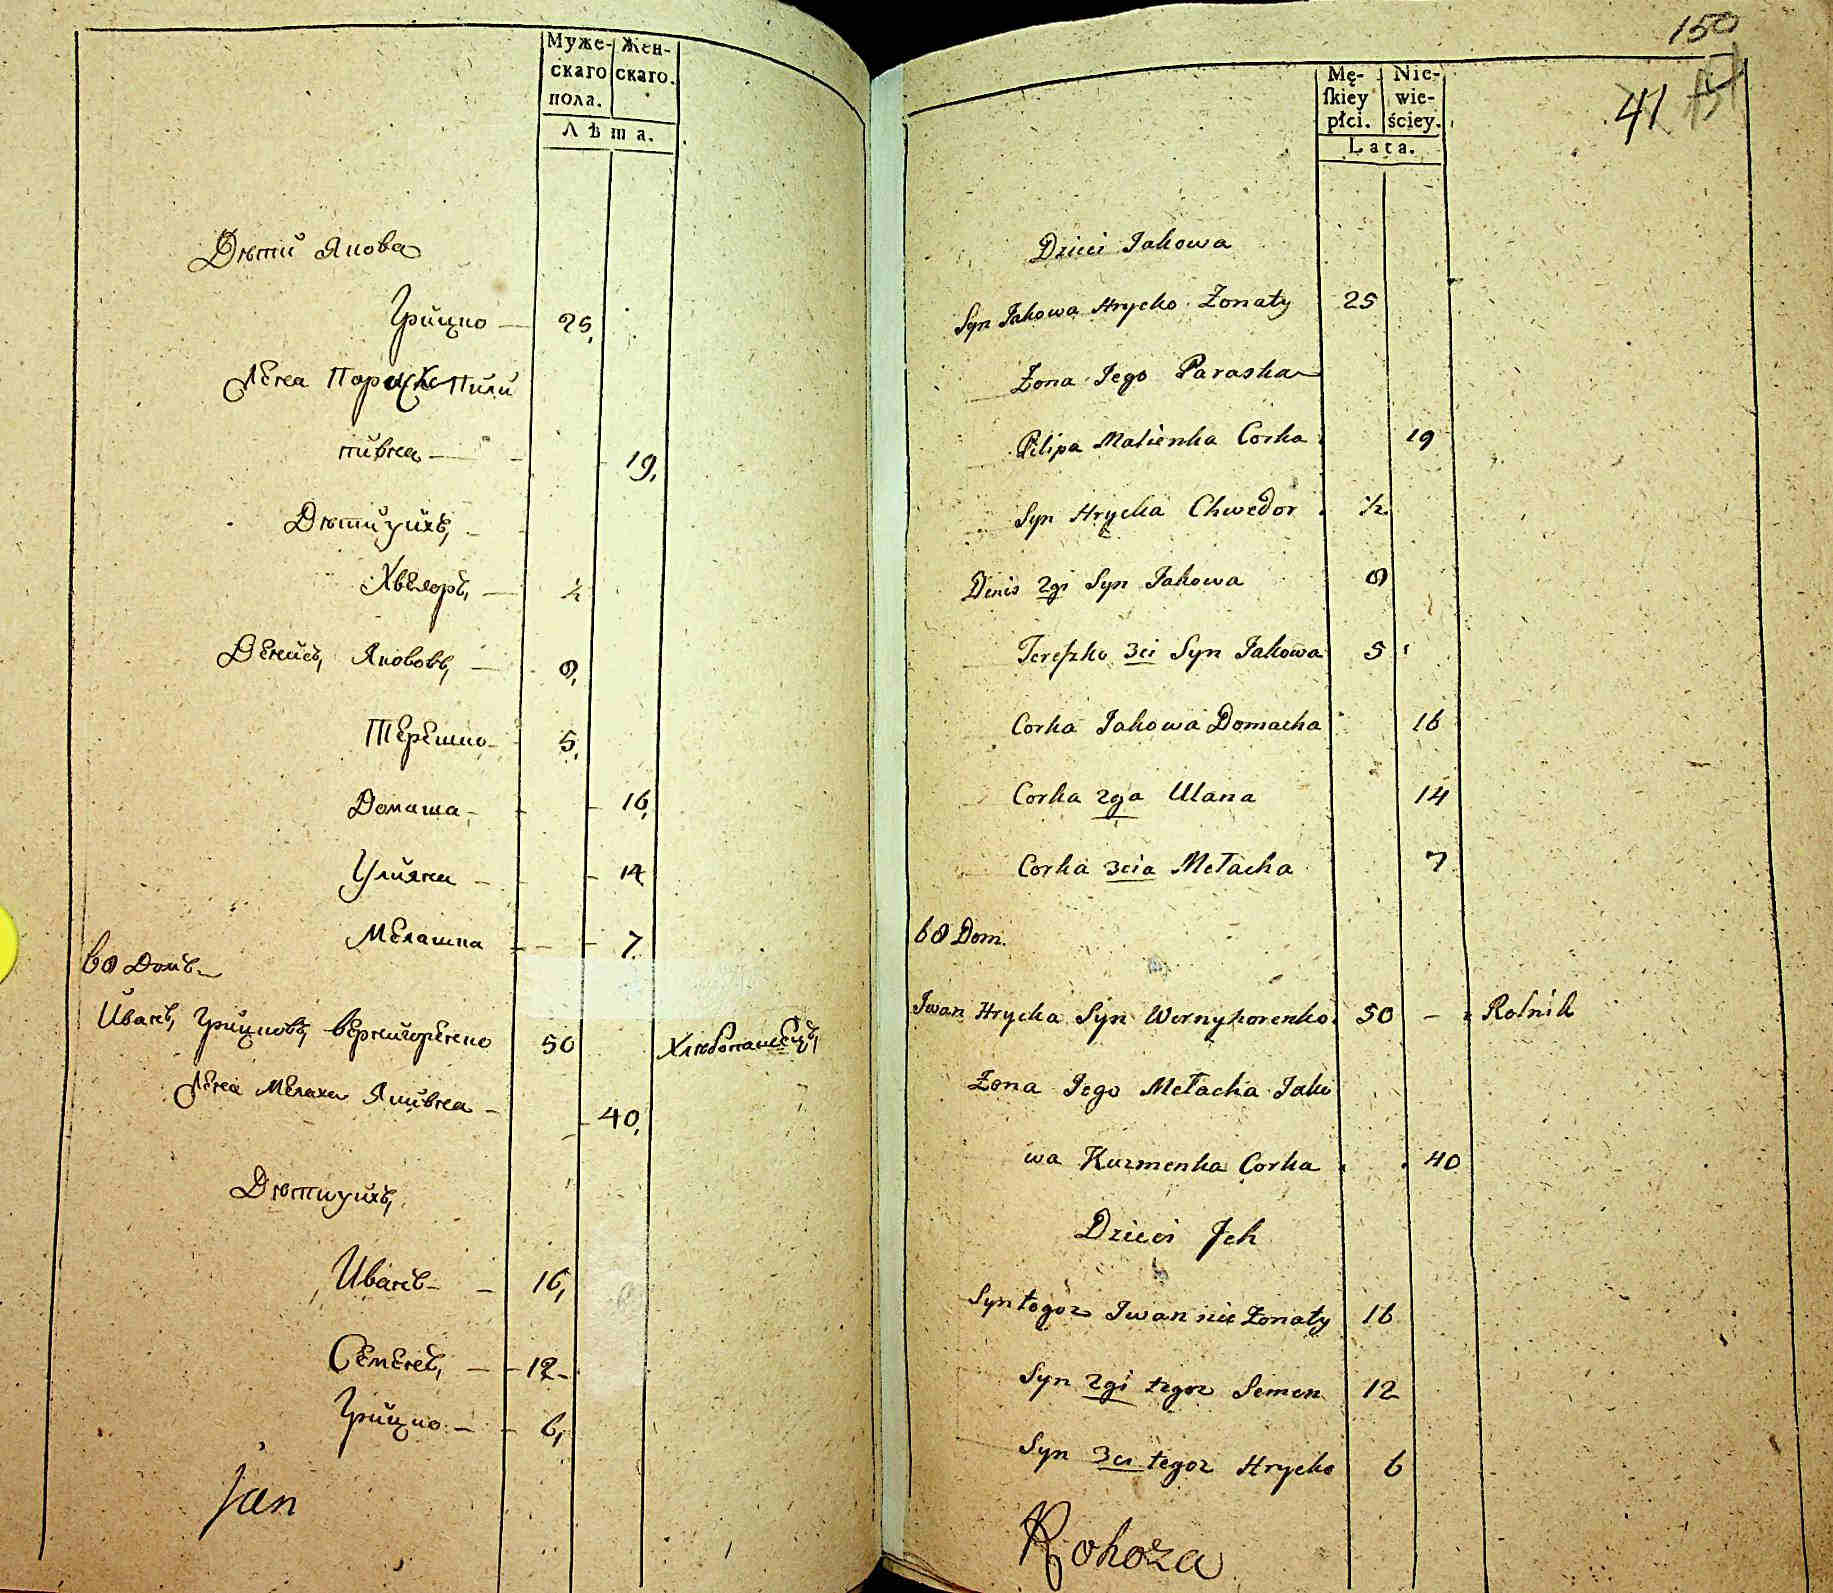 Муже- Жен-
скаго скаго.
пола.
Лѣта.
Дѣти Якова
Грицко — 25,
Жена Параска Пили
пивна — 19,
Дѣти ихъ,
Хведоръ, — ½
Денисъ, Якововъ, — 8,
Терешко — 5,
Домаха — 16,
Улияна — 14
Мелашка — 7.
60 Домъ
Иванъ, Грицковъ, Вернигоренко 50 Хлѣбопашецъ,
Жена Мелаха Яковна — 40,
Дѣти ихъ,
Иванъ — 16,
Семенъ, — 12 -
Грицко — 6,
Jan
150
41
Mę- Nie-
ſkiey wie-
płci. ściey.
Lata.
Dzieci Jakowa
Syn Jakowa Hrycko Żonaty 25
Żona Jego Paraska
Pilipa Matienka Corka 19
Syn Hrycka Chwedor ½
Denis 2gi Syn Jakowa 8
Tereſzko 3ci Syn Jakowa 5
Corka Jakowa Domacha 16
Corka 2ga Ulana 14
Corka 3cia Mełacha 7
60 Dom.
Iwan Hrycka Syn Wernyhorenko 50 — Rolnik
Żona Jego Mełacha Jako
wa Kuzmenka Corka 40
Dzieci Ich
Syn togoz Iwan nie Żonaty 16
Syn 2gi tegoz Semen 12
Syn 3ci tegoz Hrycko 6
Rohoza